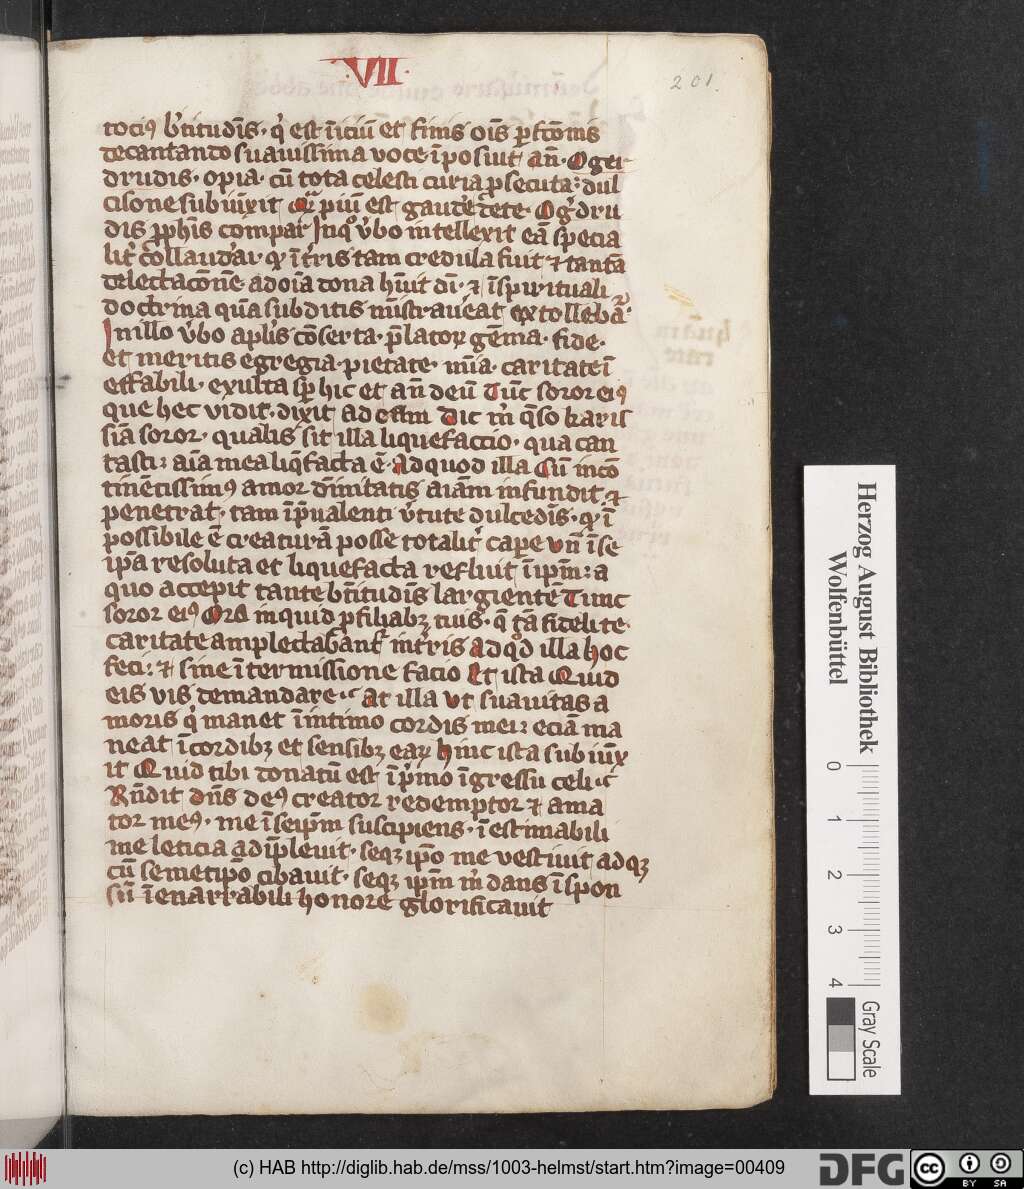 ·VII·
201.
toci9 b'titudīs· q' est īiciū et finis oīs p̄fc̄onis
decantando suauissima voce īposuit an̄· O ger
drudis· o pia· cū tota celesti curia p̄secuta: dul
cisone subiūxit Qm̄ piū est gaudē de te· O g'dru
dis ꝓph'is compar In q° v'bo intellexit eā specia
lit' collaudari· q' ī t'ris tam credula fuit ⁊ tantā
delectac̄onē ad oīa dona h̄uit dī· ⁊ ī spirituali
doctrina quā subditis mīstrauerat extollebat'·
In illo v'bo apl'is cōserta· p̄latoꝝ gēma· fide·
et meritis egregia· pietate· mīa· caritate ī
effabili· exulta sp̄ hic et an̄ deū Tūc soror ei9
que hec vidit· dixit ad eam Dic m̄ q̄so karis
sīa soror· qualis sit illa liquefaccio· qua can
tasti: aīa mea liq̄facta ē· Ad quod illa Cū incō
tinētissim9 amor diuīitatis aīam infundit ⁊
penetrat· tam īp̄ualenti v'tute dulcedīs· q' ī
possibile ē creaturā posse totalit' cape vn̄ ī se
ip̄a resoluta et liquefacta refluit ī ip̄m: a
quo accepit tante b'titudīs largientē Tunc
soror ei9 Ora inquid p̄ filiabꝫ tuis· q̄ tā fideli te·
caritate amplectabant' in t'ris Ad qd' illa hoc
feci: ⁊ sine ī termissione facio Et ista Quid
eis vis demandare· At illa Vt suauitas a
moris q' manet ī intimo cordis mei: eciā ma
neat ī cordibꝫ et sensibꝫ eaꝝ hinc ista subiūx
it Quid tibi donatū est ī p̄mo īgressu celi
Rn̄dit dn̄s de9 creator redemptor ⁊ ama
tor me9· me ī seip̄m suscipiens· īestimabili
me leticia adīpleuit· seqꝫ ip̄o me vestiuit adqꝫ
cū semetip̄o cibauit· seqꝫ ip̄m m̄ dans ī spon
sū īenarrabili honore glorificauit
Herzog August Bibliothek
Wolfenbüttel
0 1 2 3 4
Gray Scale
(c) HAB http://diglib.hab.de/mss/1003-helmst/start.htm?image=00409
DFG
cc BY SA